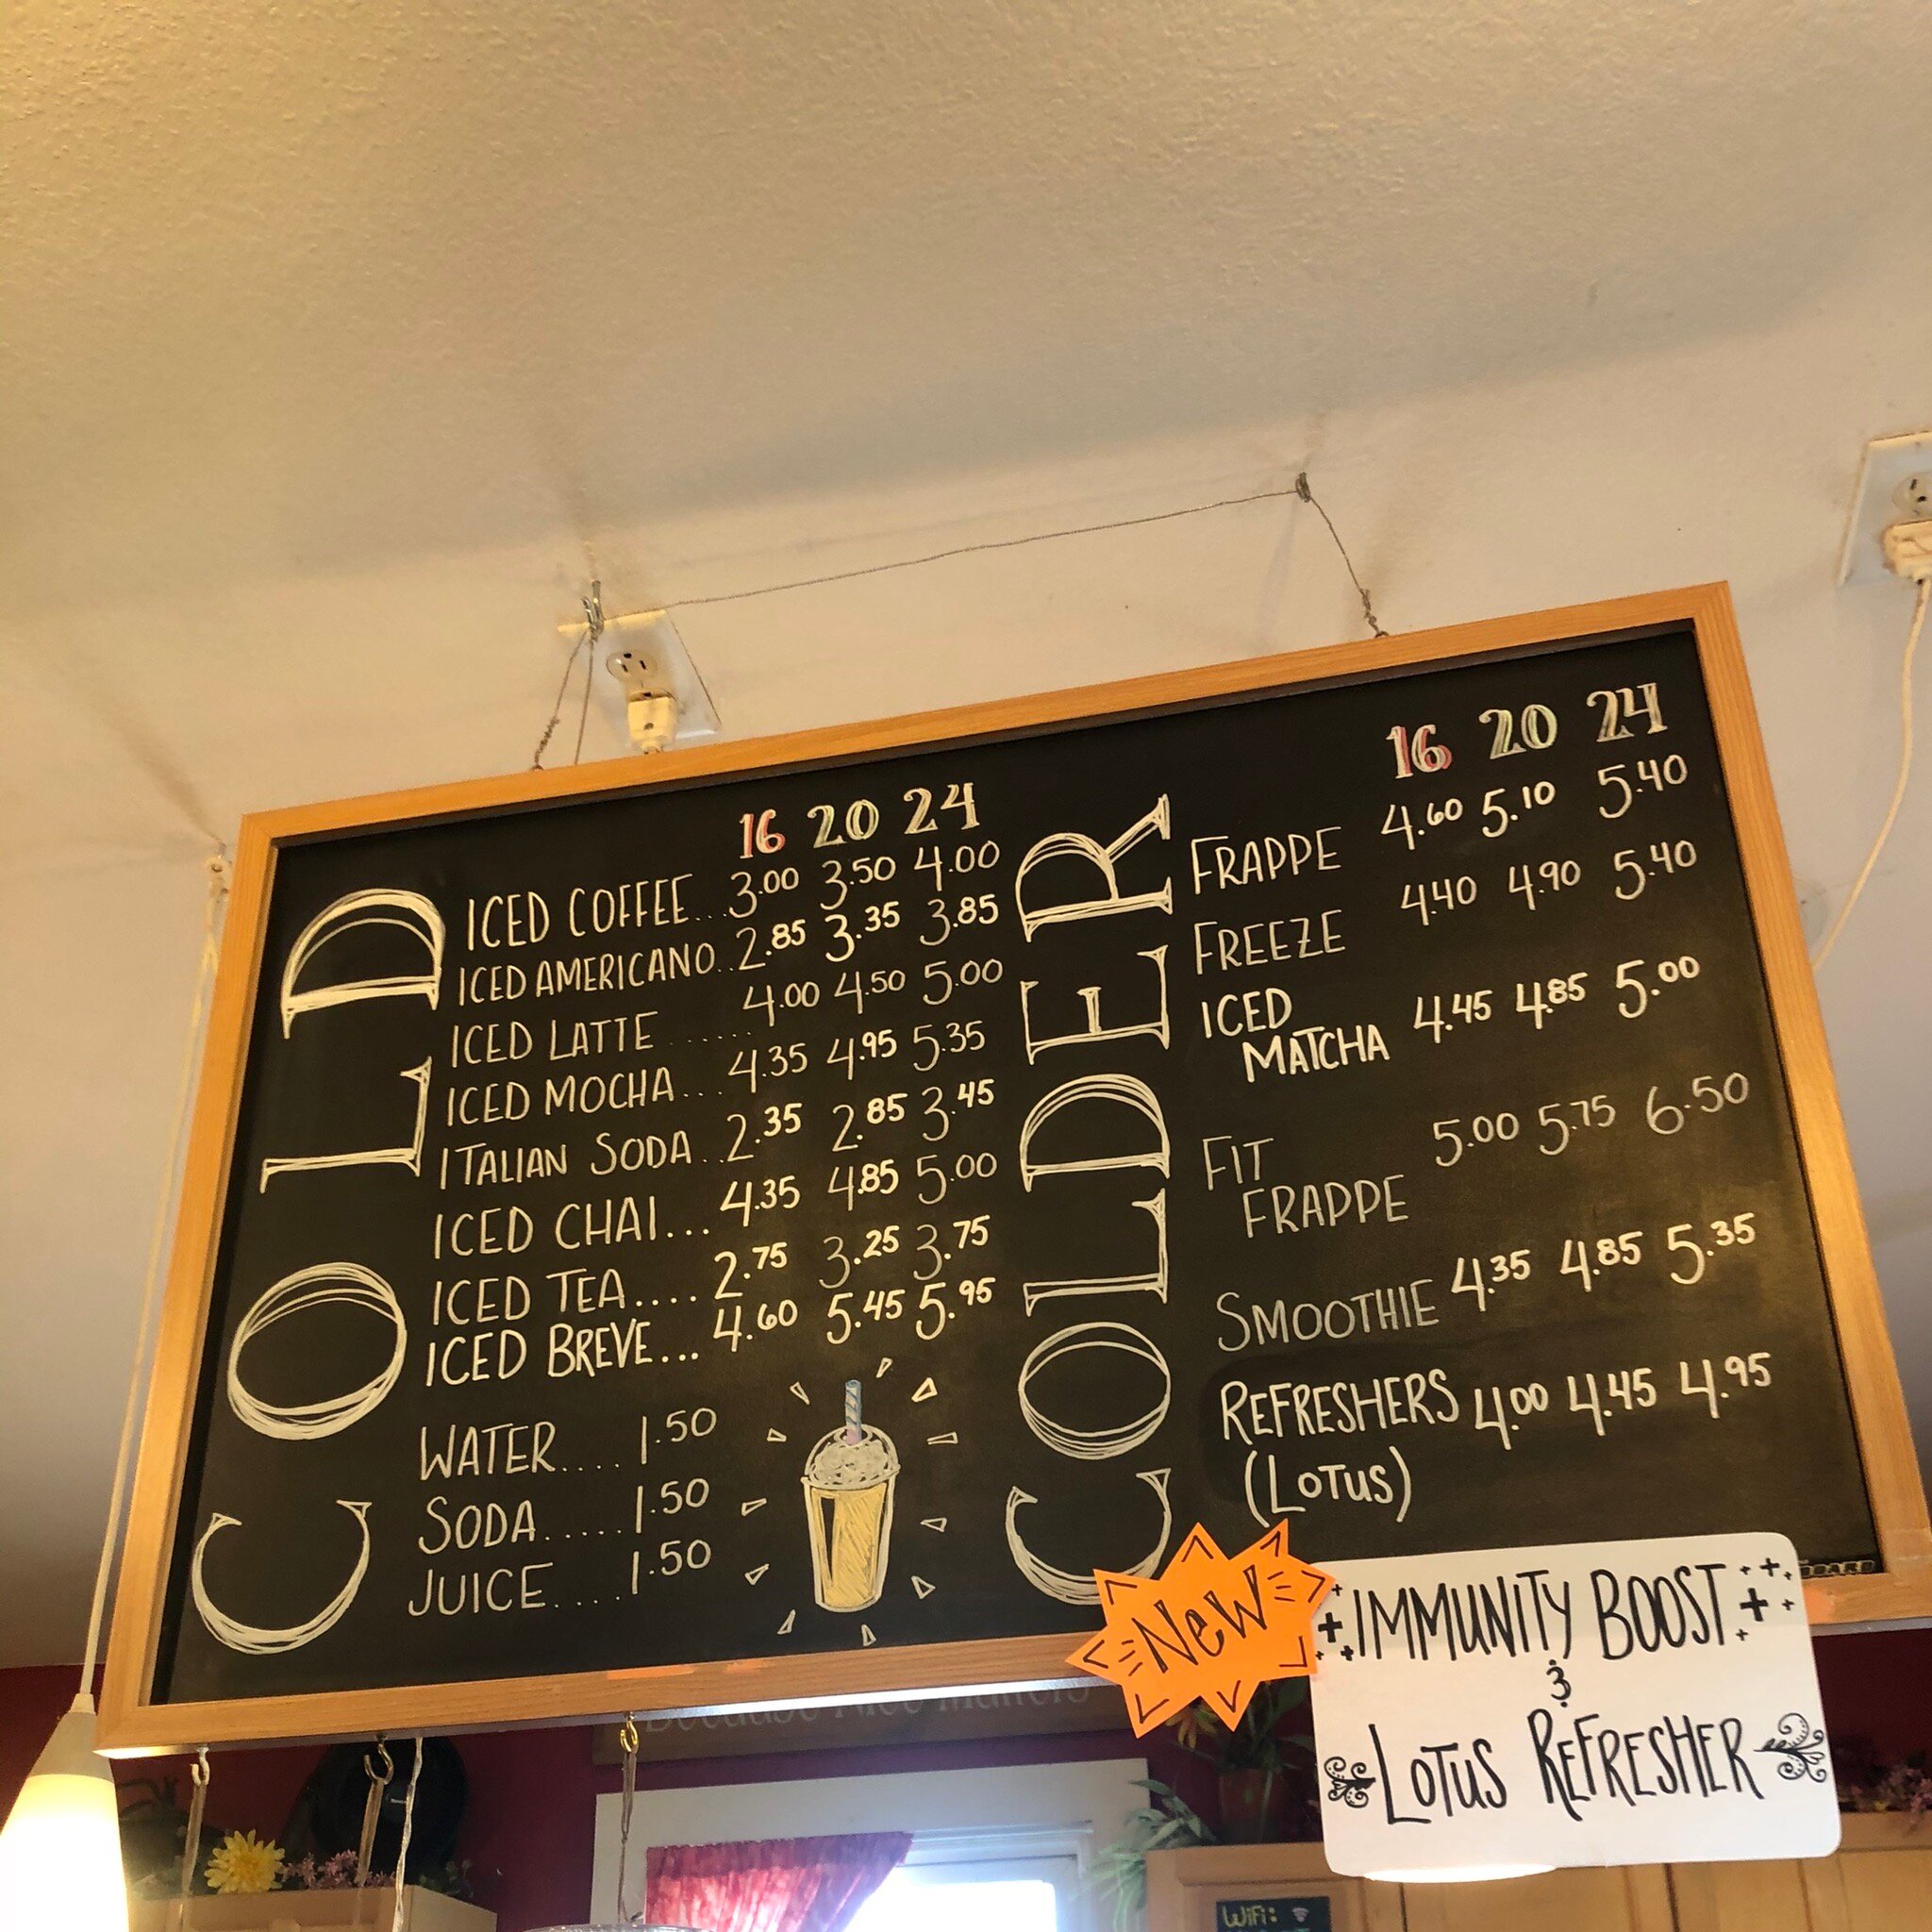 COLD
16 20 24
ICED COFFEE... 3.00 3.50 4.00
ICED AMERICANO.. 2.85 3.35 3.85
ICED LATTE ...... 4.00 4.50 5.00
ICED MOCHA... 4.35 4.95 5.35
ITALIAN SODA.. 2.35 2.85 3.45
ICED CHAI... 4.35 4.85 5.00
ICED TEA.... 2.75 3.25 3.75
ICED BREVE... 4.60 5.45 5.95
WATER.... 1.50
SODA..... 1.50
JUICE.... 1.50
COLDER
16 20 24
FRAPPE 4.60 5.10 5.40
FREEZE 4.40 4.90 5.40
ICED
MATCHA 4.45 4.85 5.00
FIT 5.00 5.75 6.50
FRAPPE
SMOOTHIE 4.35 4.85 5.35
REFRESHERS 4.00 4.45 4.95
(LOTUS)
NEW
IMMUNITY BOOST
&
LOTUS REFRESHER
Because Nice Matters
WiFi: